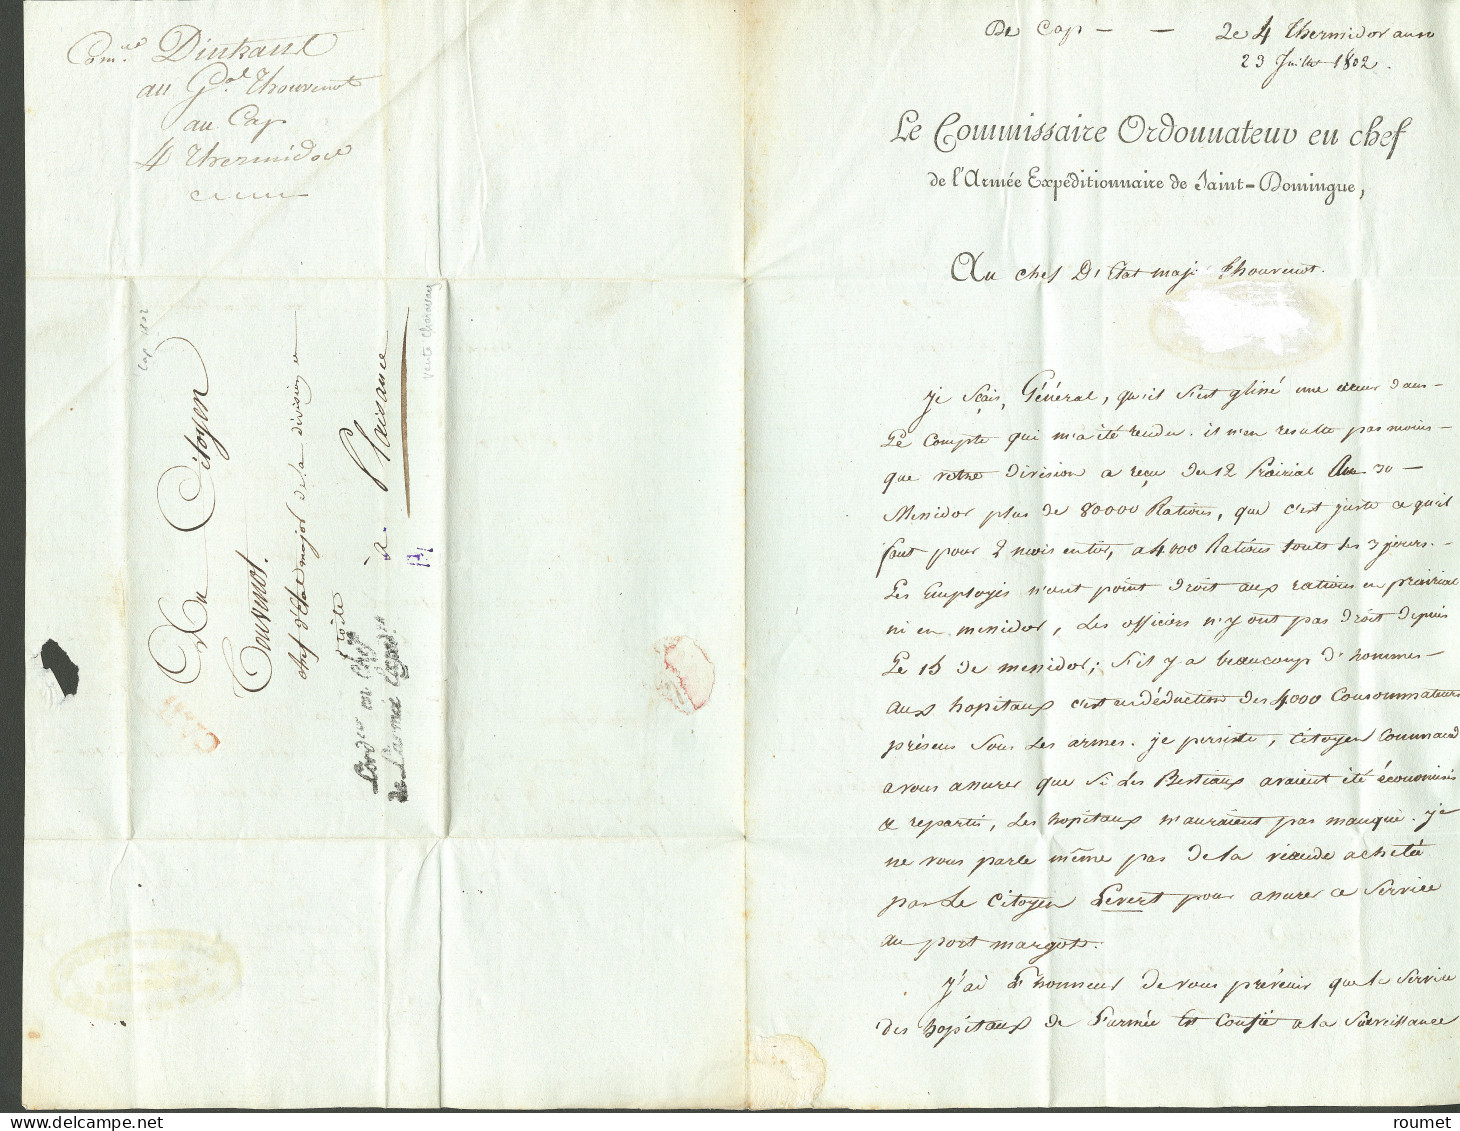 Dintrant
au Gal. Thouvenot
au Cap
4 Thermidor
Cap 1802
Au Citoyen
Touvenot.
chef d'Etat major de la division
à Plaisance
vente Charavay
L'ordr en Chef
de L'armée
De Cap - - Le 4 Thermidor an 10
23 Juillet 1802.
Le Commissaire Ordonnateur en chef
de l'Armée Expéditionnaire de Saint-Domingue,
Au chef D'Etat major Thouvenot.
je Sçais, Général, qu'il s'est glissé une erreur dans -
Le Compte qui m'a été rendu. il n'en resulte pas moins -
que votre division a reçu du 12 Prairial Au 30 -
Messidor plus de 80000 Rations, que c'est juste ce qu'il
faut pour 2 mois entier, a 4000 Rations touts les 3 jours. -
Les Employés n'ont point droit aux rations en prairial
ni en messidor, Les officiers n'y ont pas droit depuis
Le 15 de messidor; S'il y a beaucoup d'hommes -
aux hopitaux c'est en déduction des 4000 Consommateurs
présens sous Les armes. je persiste, Citoyen Command
a vous assurer que si Les Bestiaux avaient été économisés
& repartis, Les hopitaux n'auraient pas manqué. je
ne vous parle même pas de la viande achetée
par Le Citoyen Levert pour assurer ce Service
au port margot.
J'ai L'honneur de vous prévenir que le Service
des hopitaux de l'armée Est Confié a la Surveillance
roumet.fr